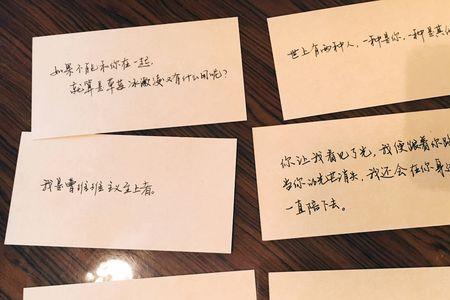 如果不能和你在一起,
就算是草莓冰激凌又有什么用呢?
世上有两种人,一种是你,一种是
我是曹班班主义至上者。
你让我看见了光,我便跟着你
当你的光芒消失,我还会在你身
一直陪下去。